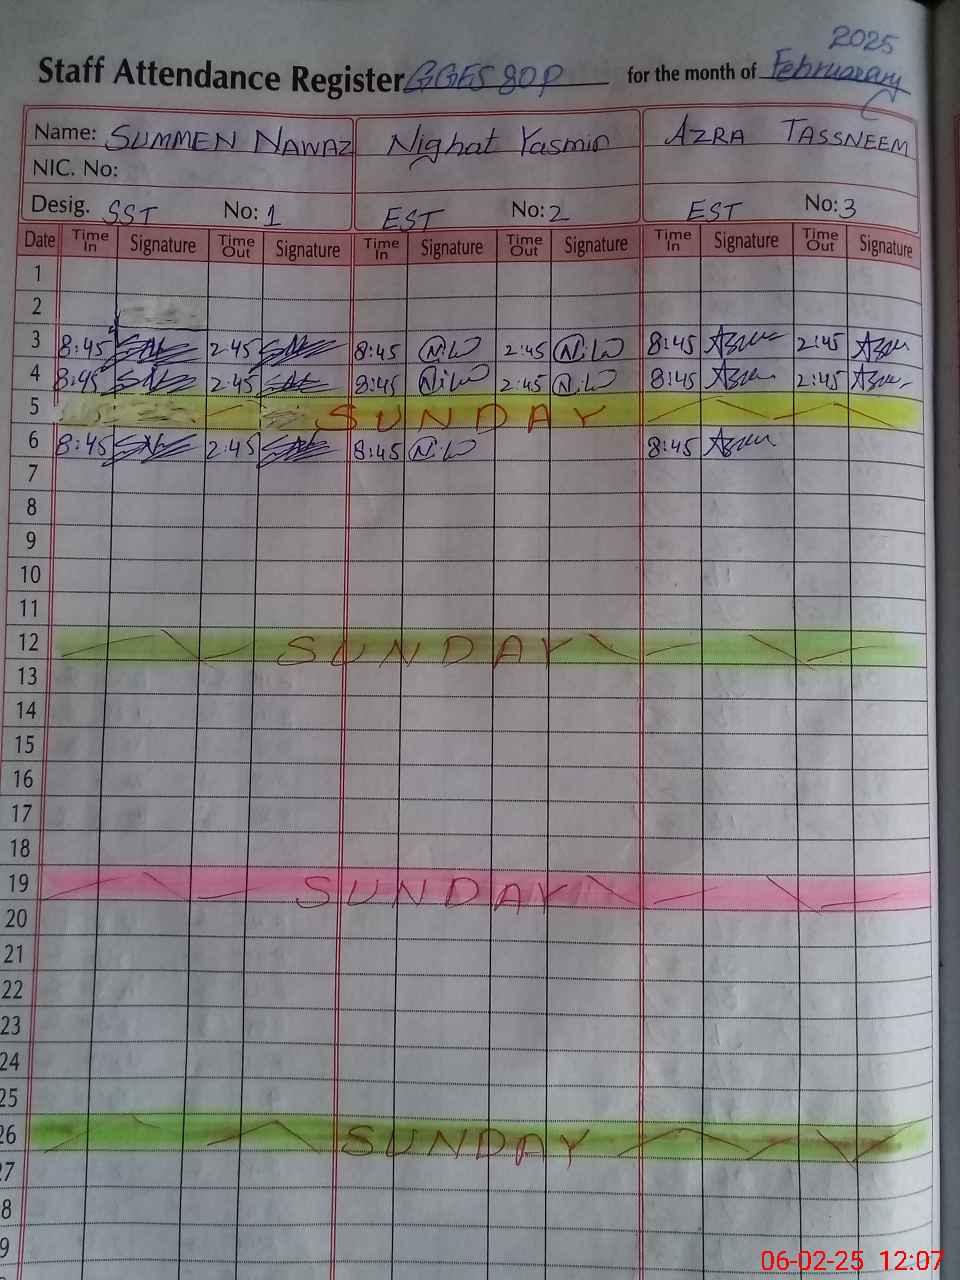 2025
Staff Attendance Register GGES 80P for the month of Februeary
Name: SUMMEN NAWAZ Nighat Yasmin AZRA TASSNEEM
NIC. No:
Desig. SST No: 1 EST No: 2 EST No: 3
Date Time In Signature Time Out Signature Time In Signature Time Out Signature Time In Signature Time Out Signature
1
2
3 8:45 2:45 8:45 2:45 8:45 2:45
4 8:45 2:45 8:45 2:45 8:45 2:45
5 SUNDAY
6 8:45 2:45 8:45 8:45
7
8
9
10
11
12 SUNDAY
13
14
15
16
17
18
19 SUNDAY
20
21
22
23
24
25
26 SUNDAY
27
8
9
06-02-25 12:07